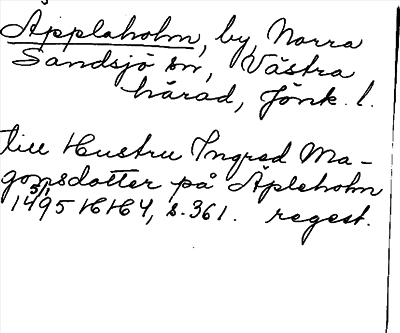 Äpplaholm, by, Norra
Sandsjö sn, Västra
härad, Jönk. l.
till Hustru Ingred Ma-
gonsdotter på Äpleholm
1495 HH4, s. 361. regest.